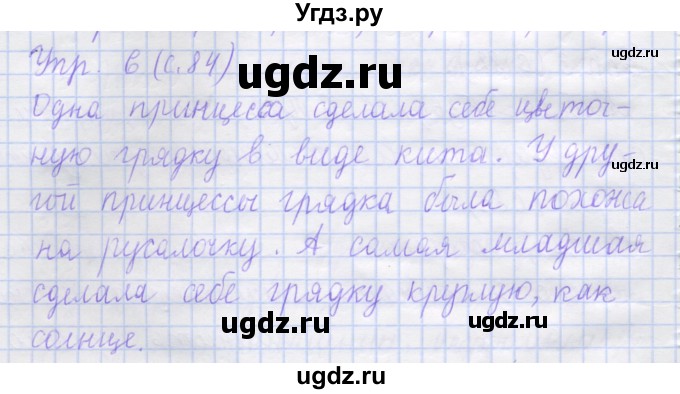 Угдз.ру
Упр. 6 (с. 84)
ugdz.ru
ugdz.ru
Одна принцесса сделала себе цветоч-
ную грядку в виде кита. У дру-
ugdz.ru
гой принцессы грядка была похожа
на русалочку. А самая младшая
сделала себе грядку круглую, как
ugdz.ru
ugdz.ru
солнце.
ugdz.ru